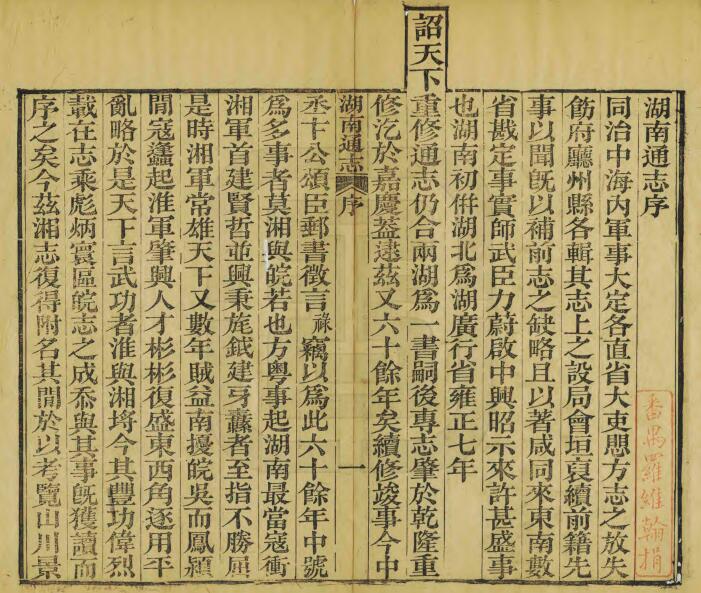 湖南通志序
同治中海內軍事大定各直省大吏思方志之放失
飭府廳州縣各輯其志上之設局會垣裒續前籍先
事以聞旣以補前志之缺略且以著咸同來東南數
省戡定事實師武臣力蔚啟中興昭示來許甚盛事
也湖南初併湖北爲湖廣行省雍正七年
詔天下重修通志仍合兩湖爲一書嗣後專志肇於乾隆重
修汔於嘉慶葢逮茲又六十餘年矣續修竣事今中
湖南通志 序 一
丞卞公頌臣郵書徵言祿竊以爲此六十餘年中號
爲多事者莫湘與皖若也方粤事起湖南最當寇衝
湘軍首建賢哲並興秉旄鉞建牙纛者至指不勝屈
是時湘軍常雄天下又數年賊益南擾皖吳而鳳潁
閒寇蠭起淮軍肇興人才彬彬復盛東西角逐用平
亂略於是天下言武功者淮與湘埒今其豐功偉烈
載在志乘彪炳寰區皖志之成忝與其事旣獲讀而
序之矣今茲湘志復得附名其閒於以考覽山川景
番禺羅維翰捐